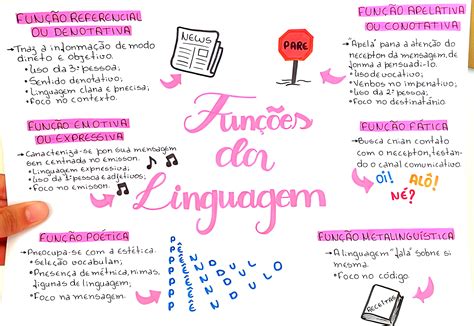 FUNÇÃO REFERENCIAL
OU DENOTATIVA
→Traz a informação de modo
direto e objetivo.
•Uso da 3ª pessoa;
•Sentido denotativo;
•Linguagem clara e precisa;
•Foco no contexto.
NEWS
PARE
FUNÇÃO APELATIVA
OU CONOTATIVA
→"Apela" para a atenção do
receptor da mensagem, de
forma a persuadi-lo.
•Uso de vocativo;
•Verbos no imperativo;
•Uso da 2ª pessoa;
•Foco no destinatário.
Funções
da
Linguagem
FUNÇÃO EMOTIVA
OU EXPRESSIVA
→Caracteriza-se por sua mensagem
ser centrada no emissor.
•Linguagem expressiva;
•Uso da 1ª pessoa e adjetivos;
•Foco no emissor.
FUNÇÃO FÁTICA
→Busca criar contato
com o receptor, testando
o canal comunicativo.
OI! ALÔ!
NÉ?
FUNÇÃO POÉTICA
→Preocupa-se com a estética.
•Seleção vocabular;
•Presença de métrica, rimas,
figuras de linguagem;
•Foco na mensagem.
P
PÊ
PÊN
PÊND
PÊNDU
PÊNDUL
PÊNDULO
FUNÇÃO METALINGUÍSTICA
→A linguagem "fala" sobre si
mesma.
•Foco no código.
RECEITAS